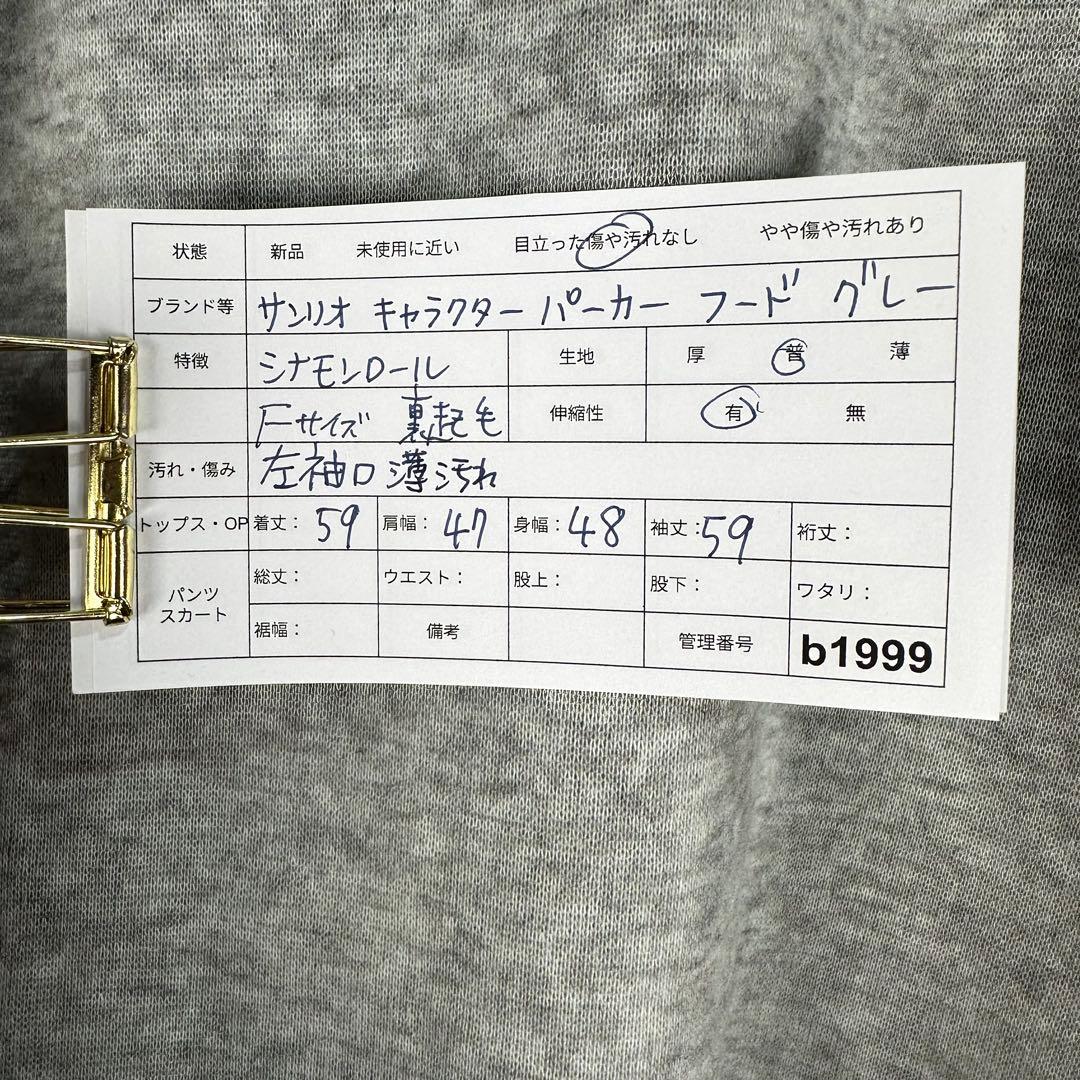 状態 新品 未使用に近い 目立った傷や汚れなし やや傷や汚れあり
ブランド等 サンリオ キャラクター パーカー フード グレー
特徴 シナモンロール 生地 厚 普 薄
Fサイズ 裏起毛 伸縮性 有 無
汚れ・傷み 左袖口 薄汚れ
トップス・OP 着丈：59 肩幅：47 身幅：48 袖丈：59 裄丈：
パンツ スカート 総丈： ウエスト： 股上： 股下： ワタリ：
裾幅： 備考 管理番号 b1999